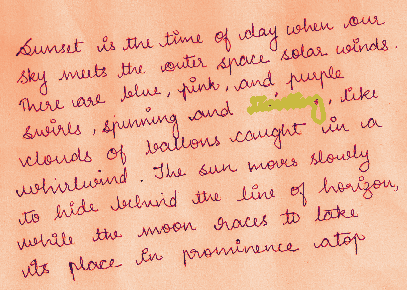 Sunset is the time of day when our
sky meets the outer space solar winds.
There are blue, pink, and purple
swirls, spinning and , like
clouds of balloons caught in a
whirlwind. The sun moves slowly
to hide behind the line of horizon,
while the moon races to take
its place in prominence atop